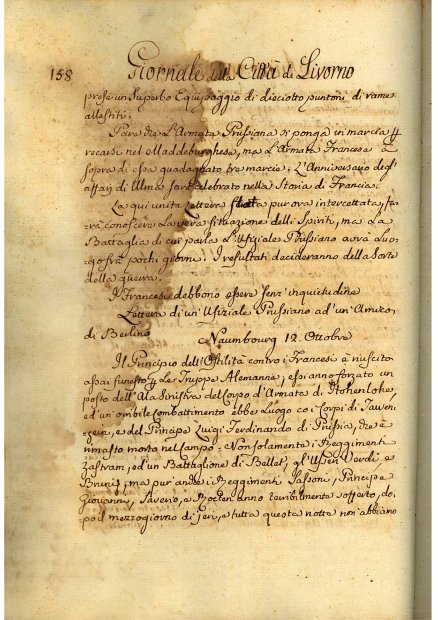 158 Giornale della Città di Livorno
prese un superbo Equipaggio di dieciotto puntoni di rame
allestiti.
Pare che L'Armata Prussiana si ponga in marcia p
recarsi nel Maddeburghese, ma L'Armata Francese à
sopra di essa guadagnato tre marcie. L'Anniversario degl'
affari di Ulma sarà celebrato nella Storia di Francia.
La qui unita Lettera stata pur ora intercettata, fa-
rà conoscere La vera situazione delli Spiriti, ma La
Battaglia di cui parla L'Ufiziale Prussiano avrà Luo-
go frà pochi giorni. I resultati decideranno della Sorte
della guerra.
I Francesi debbono essere senz'inquietudine
Lettera di un'Ufiziale Prussiano ad un'Amico
di Berlino
Naumbourg 12. Ottobre
Il Principio dell'Ostilità contro i Francesi è riuscito
assai funesto p Le Truppe Alemanne, essi anno forzato un
posto dell'Ala Sinistra del Corpo d'Armata di Hohenlohe,
ed un'orribile combattimento ebbe Luogo co i Corpi di Tauen-
zein, e del Principe Luigi Ferdinando di Prussia, che è
rimasto morto nel campo. Non solamente i Reggimenti
Zastram, ed un Battaglione di Bellet, gl'Usseri Verdi e
Bruni, ma pur'anche i Reggimenti Sassoni, Principe
Giovanni, Saverio, e anno terribilmente sofferto, do-
po il mezzogiorno di jeri, e tutta questa notte non abbiano